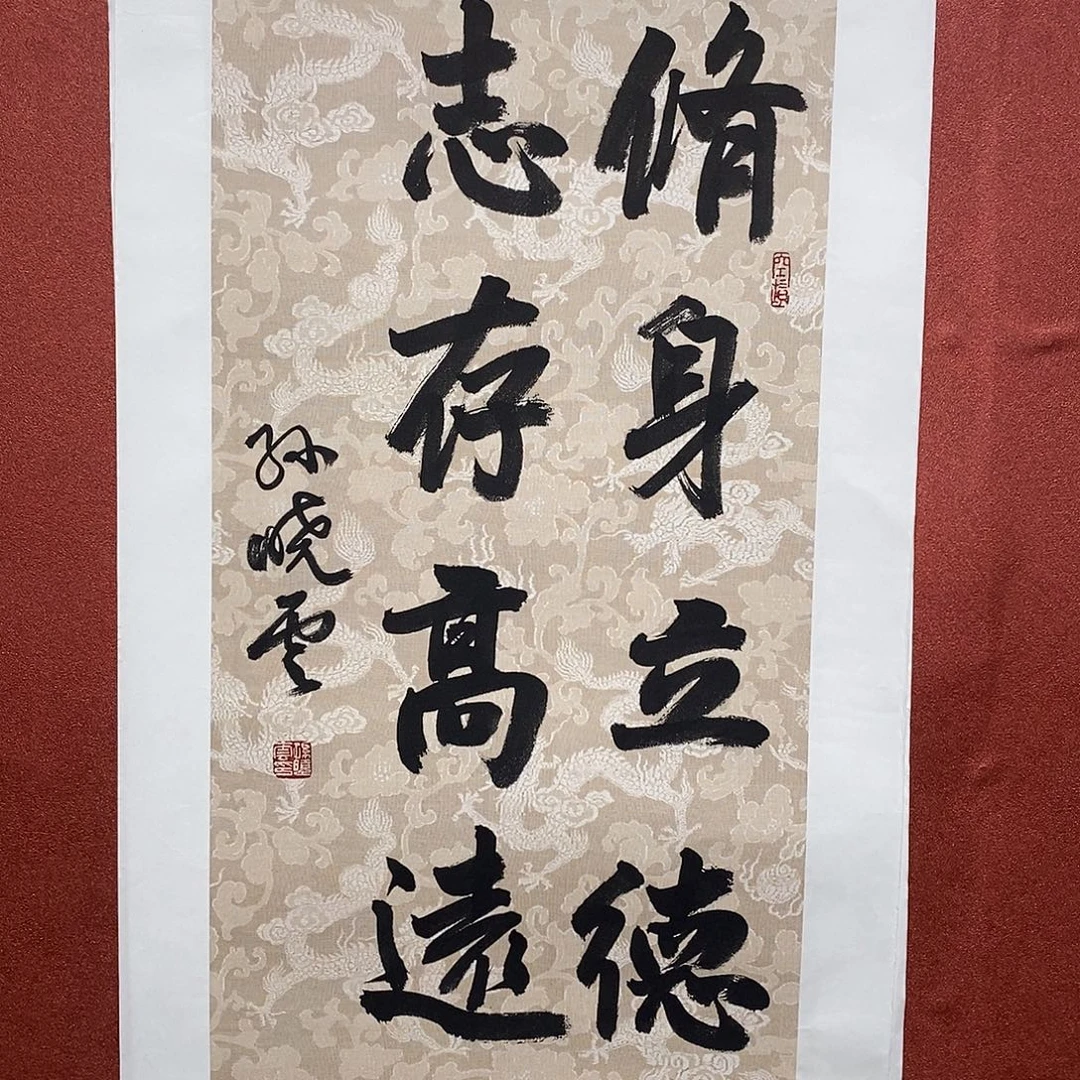 脩身立德
志存高遠
孫晓雲